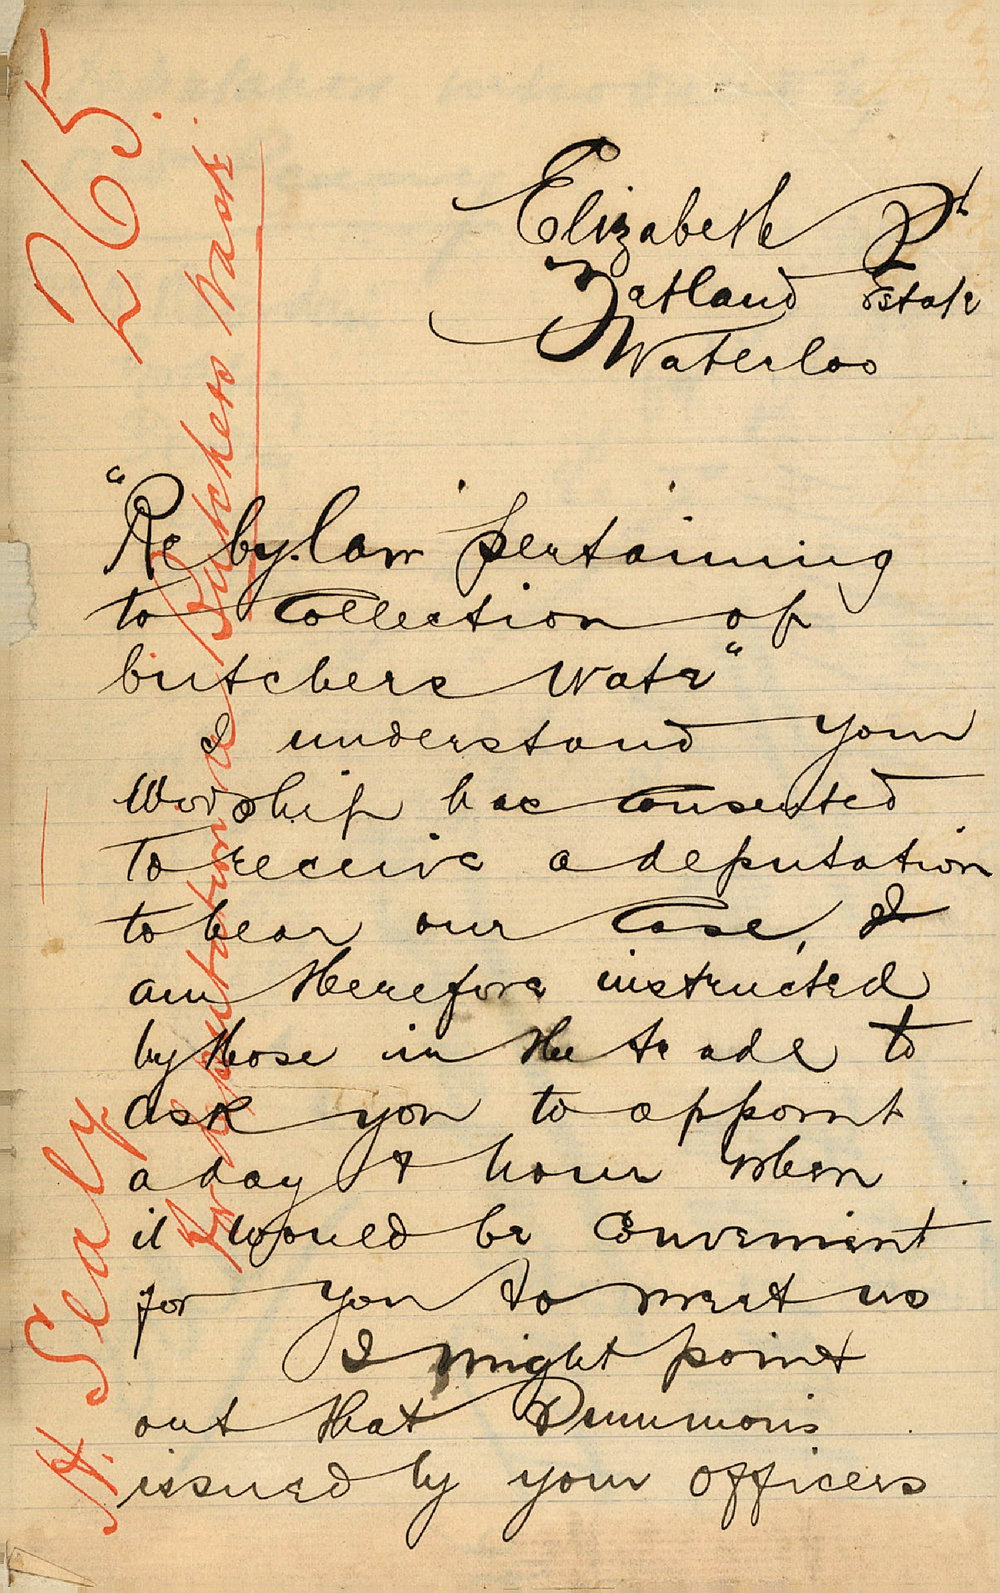 265.
H. Sealy
re Butchers Waste.
Elizabeth St
Zetland Estate
Waterloo
"Re by.law pertaining
to Collection of
butchers Waste"
I understand Your
Worship has consented
to receive a deputation
to hear our Case, I
am therefore instructed
by those in the trade to
ask you to appoint
a day & hour when
it would be convenient
for you to meet us
I might point
out that Summons
issued by your officers